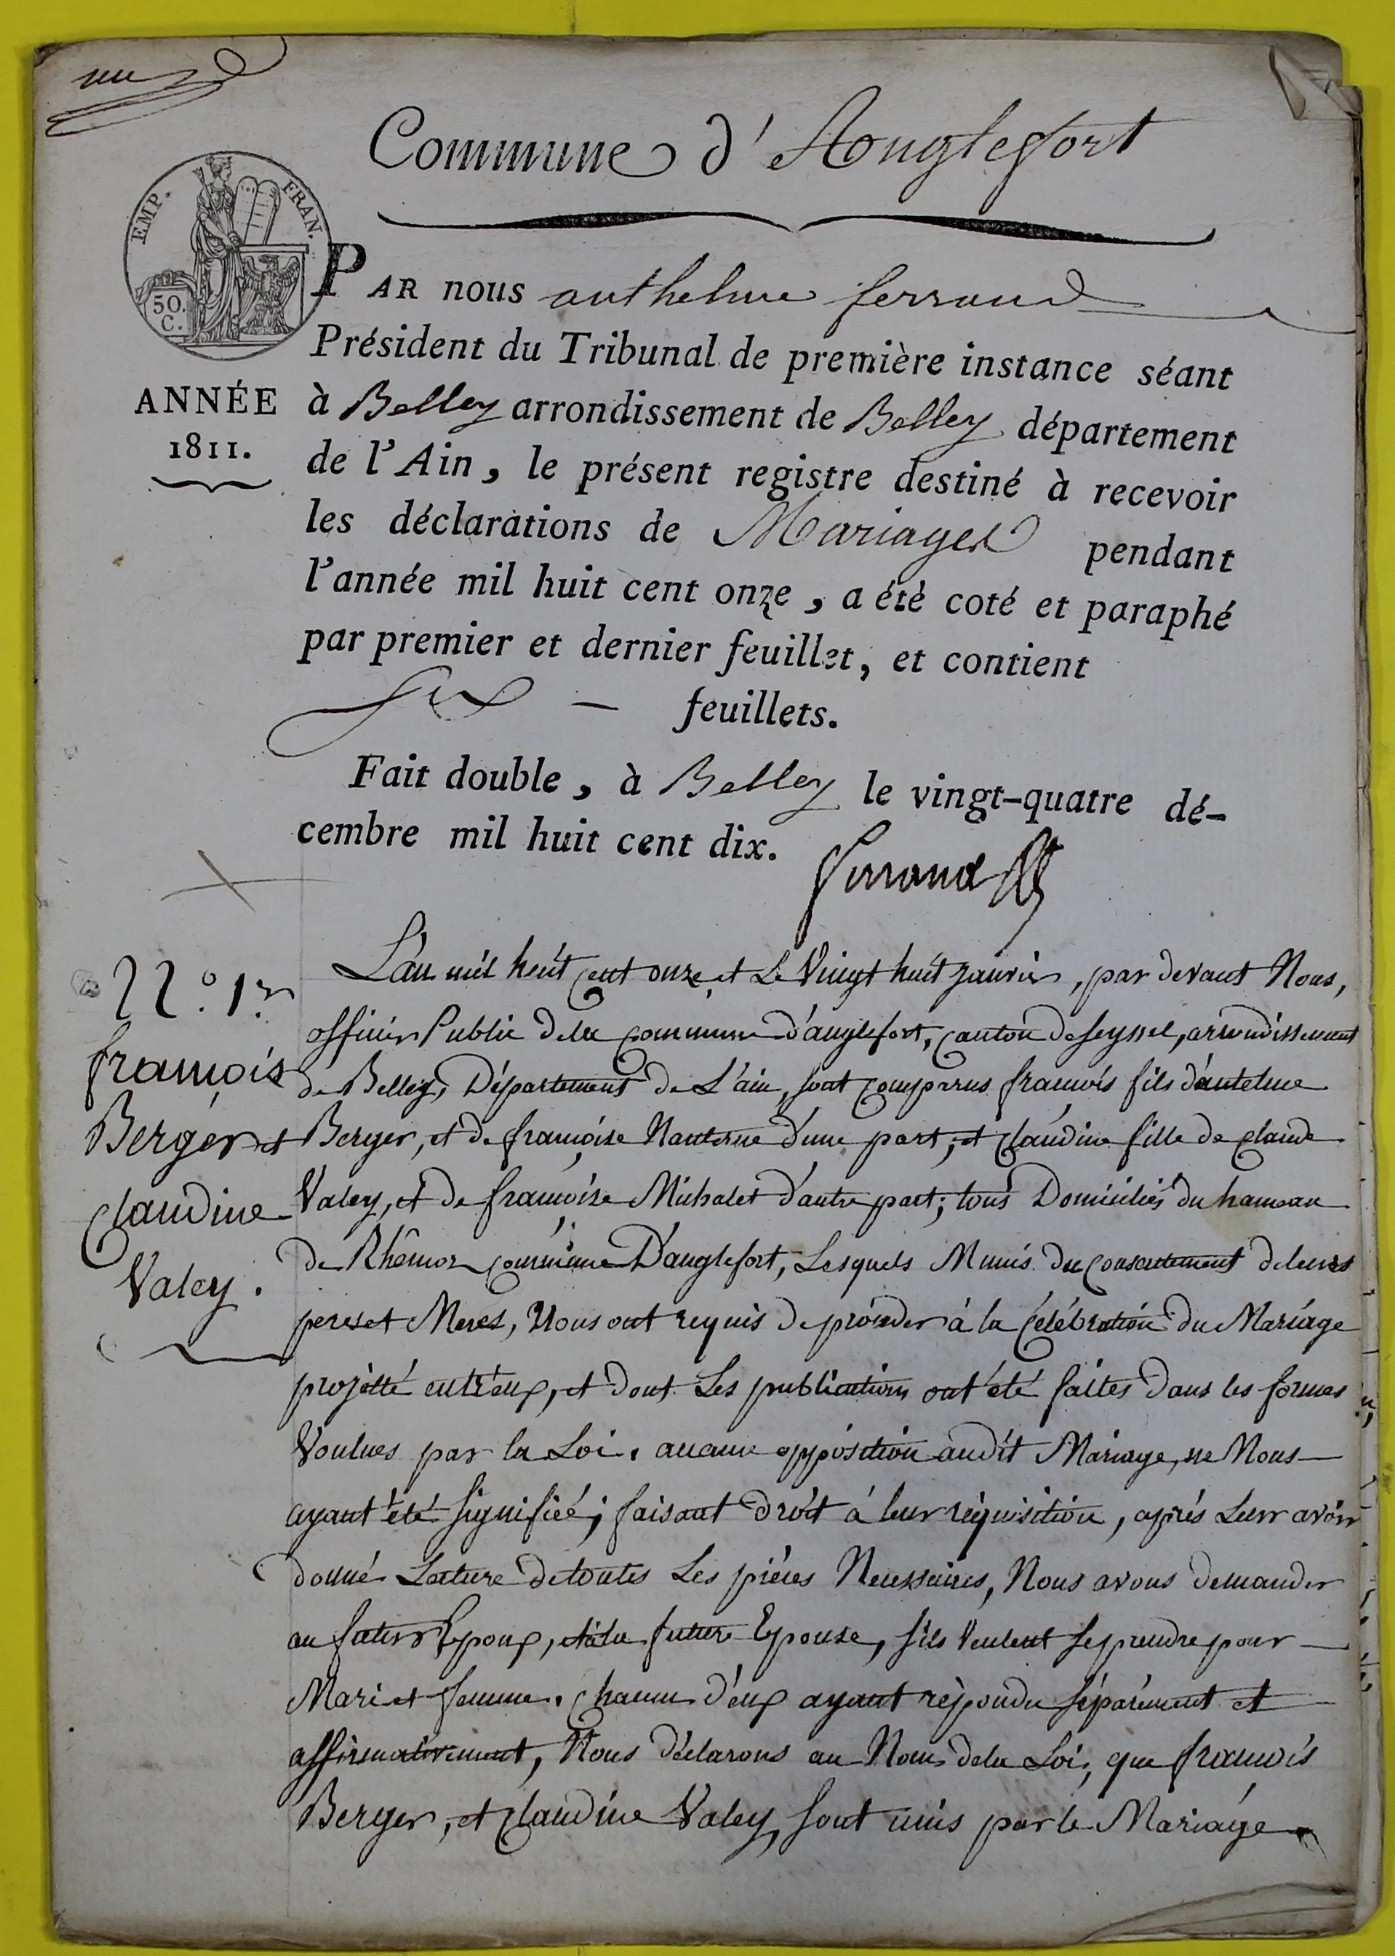 un
Commune d'Anglefort
EMP. FRAN.
50.
C.
PAR nous anthelme ferrand
Président du Tribunal de première instance séant
ANNÉE
1811.
à Belley arrondissement de Belley département
de l'Ain, le présent registre destiné à recevoir
les déclarations de Mariages pendant
l'année mil huit cent onze, a été coté et paraphé
par premier et dernier feuillet, et contient
six — feuillets.
Fait double, à Belley le vingt-quatre dé-
cembre mil huit cent dix.
Ferrand
N.º 1.er
françois
Berger et
Claudine
Valey.
L'an mil huit cent onze, et Le Vingt huit janvier, par devant Nous,
officier Public de la Commune d'anglefort, Canton de seyssel, arrondissement
de Belley, Département de L'ain, sont comparus françois fils d'antelme
Berger, et de françoise Nanterne d'une part, et Claudine fille de Claude
Valey, et de françoise Michalet d'autre part; tous Domiciliés du hameau
de Rhêmoz commune D'anglefort, Lesquels Munis du consentement de leurs
peres et Meres, Nous ont requis de proceder à la Célébration du Mariage
projetté entr'eux, et dont Les publications ont été faites dans les formes
Voulues par la Loi. aucune opposition audit Mariage, ne Nous
ayant été signifiéé; faisant droit à leur réquisition, aprés Leur avoir
donné Lecture de toutes Les piéces Necessaires, Nous avons demander
au futur Epoux, et à la future Epouse, s'ils Veulent se prendre pour
Mari et femme. Chacun d'eux ayant répondu séparément et
affirmativement, Nous déclarons au Nom de la Loi, que françois
Berger, et Claudine Valey, sont unis par le Mariage.